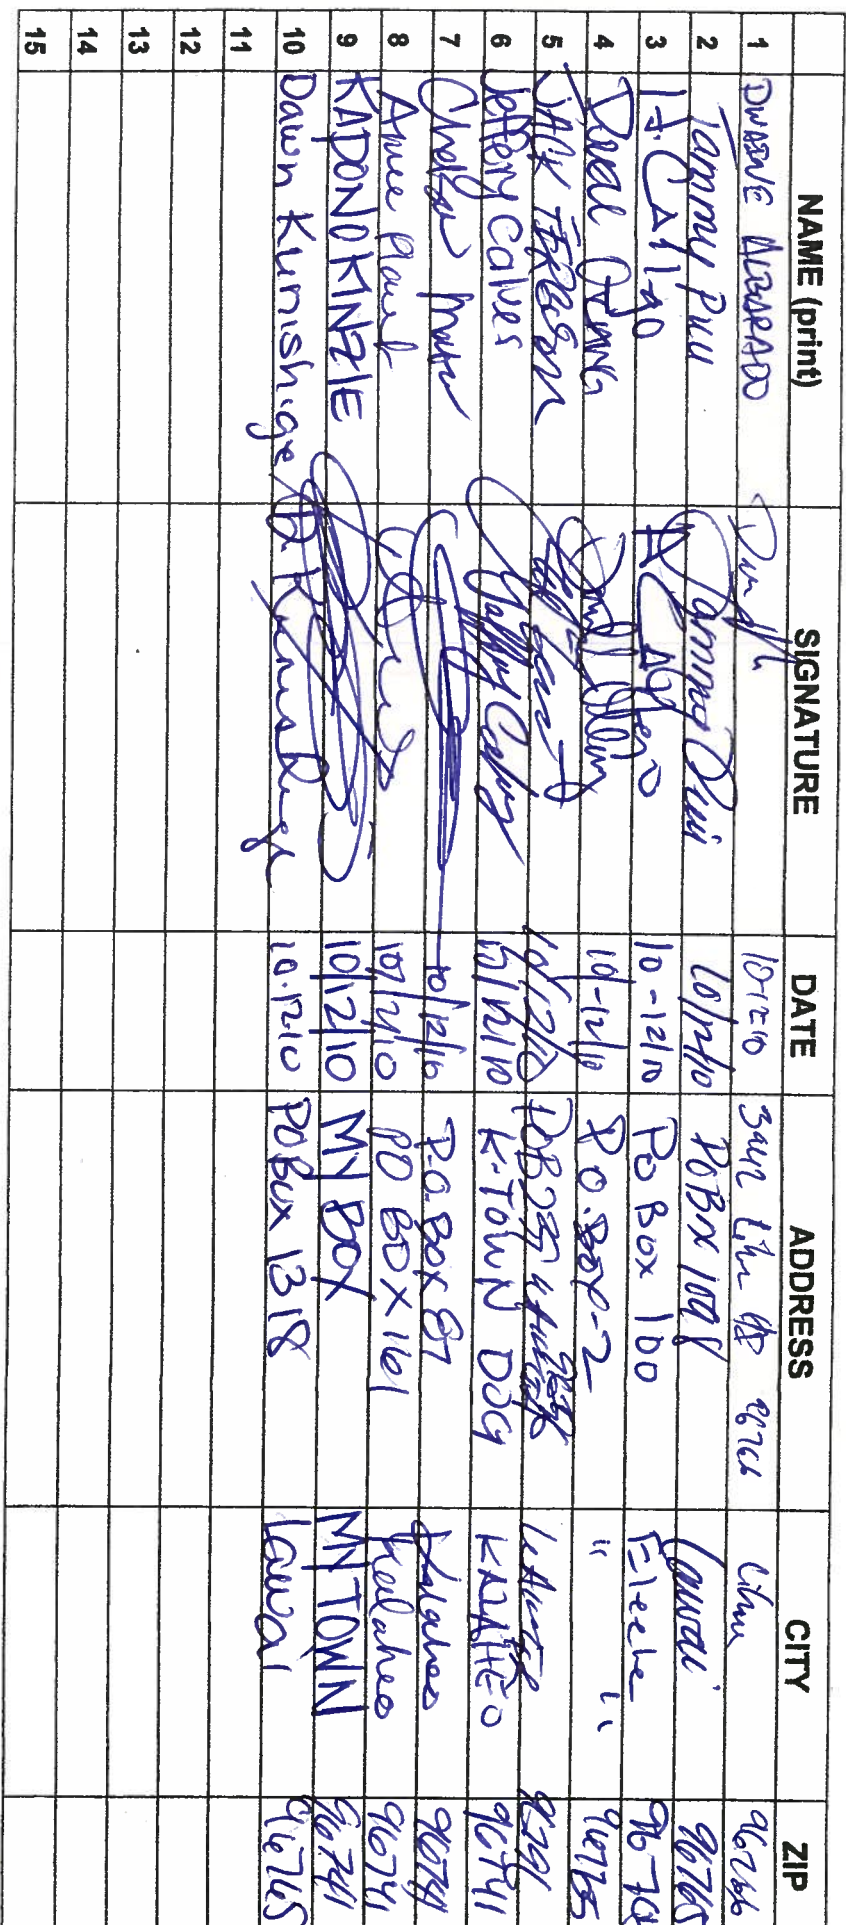 NAME (print) SIGNATURE DATE ADDRESS CITY ZIP
1 DWAINE ALBARADO 10-12-10 3442 Lihue 96766 Lihue 96766
2 Tammy Puu Tammy Puu 10/12/10 POBX 1098 Lawai 96765
3 H. CAlleo 10-12/10 PO Box 100 Eleele 96705
4 10-12/10 P.O. BOX-2 " " 96705
5 JACK 10/12/10
6 Jeffery Calves Jeffery Calves 10/12/10 K-TOWN DOG KALAHEO 96741
7 Chelsea 10/12/10 P.O. BOX 87 Kalaheo 96741
8 10/12/10 PO BOX 1161 Kalaheo 96741
9 KADONO KINZIE 10/12/10 MY BOX MY TOWN 96741
10 Dawn Kunishige D. Kunishige 10.12.10 POBOX 1318 Lawai 96765
11
12
13
14
15